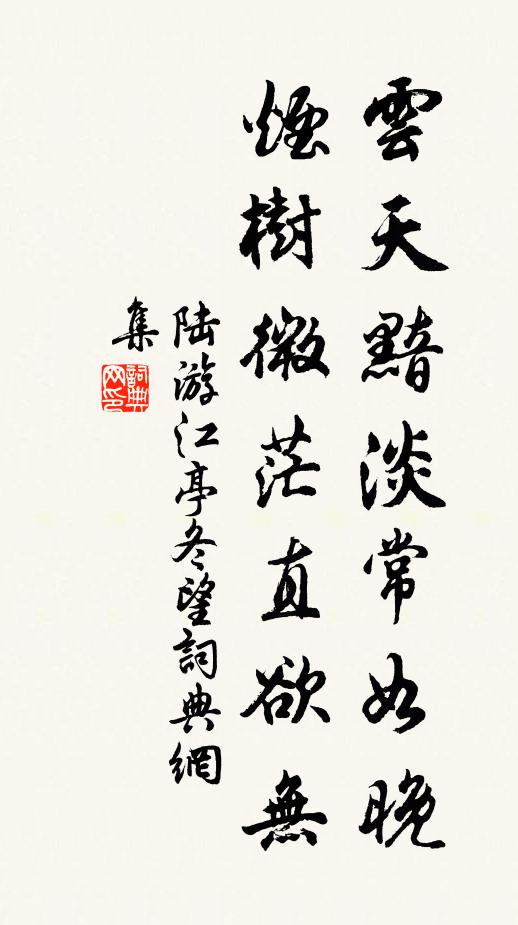 雲天黯淡常如晚
煙樹微茫直欲無
陆游江亭冬望詞典網
集
詞典
网印